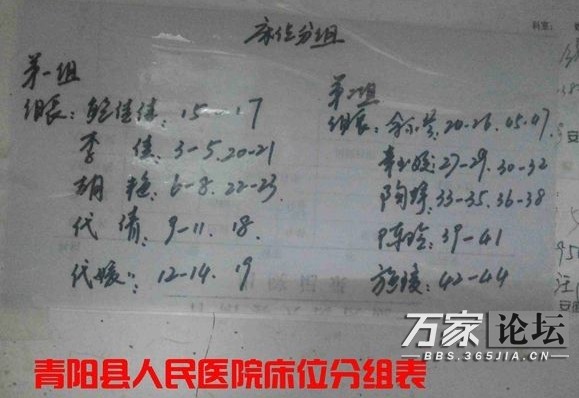 床位分组
第一组
组长:鲍佳佳:15-17
李 佳:3-5.20-21
胡 艳:6-8.22-23
代 倩:9-11.18.
代媛:12-14.19
第二组
组长:20-26.45.47
27-29.30-32
陶婷:33-35.36-38
陈晗:39-41
施 :42-44
科室:
万家论坛
BBS.365JIA.CN
青阳县人民医院床位分组表